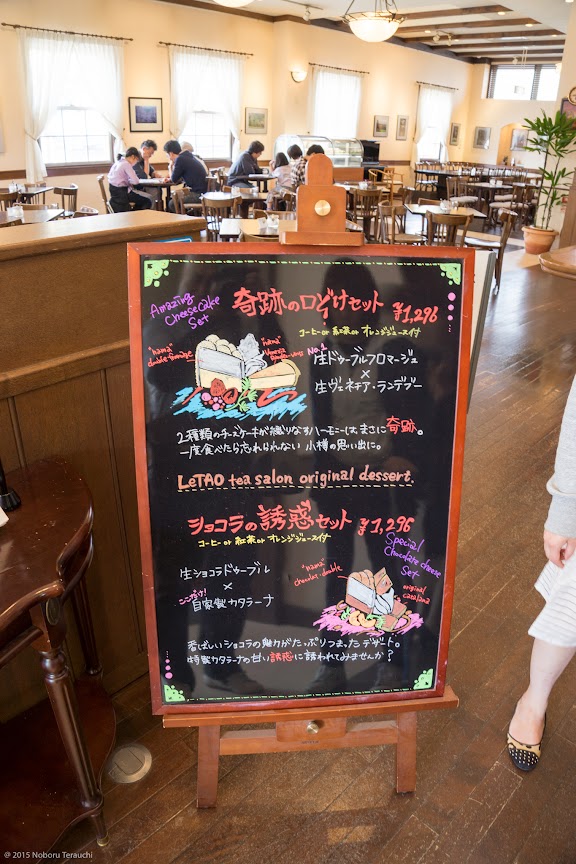 Amazing
Cheesecake
Set
奇跡の口どけセット ¥1,296
コーヒー or 紅茶 or オレンジジュース付
"nama"
double fromage
"nama"
Venezia
Rendez-vous
No.1
生ドゥーブルフロマージュ
×
生ヴェネチア・ランデブー
2種類のチーズケーキが織りなすハーモニーは、まさに奇跡。
一度食べたら忘れられない 小樽の思い出に。
LeTAO tea salon original dessert.
ショコラの誘惑セット ¥1,296
コーヒー or 紅茶 or オレンジジュース付
Special
Chocolate cheese
Set
生ショコラドゥーブル
×
ここだけ!
自家製カタラーナ
"nama"
chocolat-double
original
catalana
香ばしいショコラの魅力がたっぷりつまったデザート。
特製カタラーナの甘い誘惑に誘われてみませんか?
© 2015 Noboru Terauchi